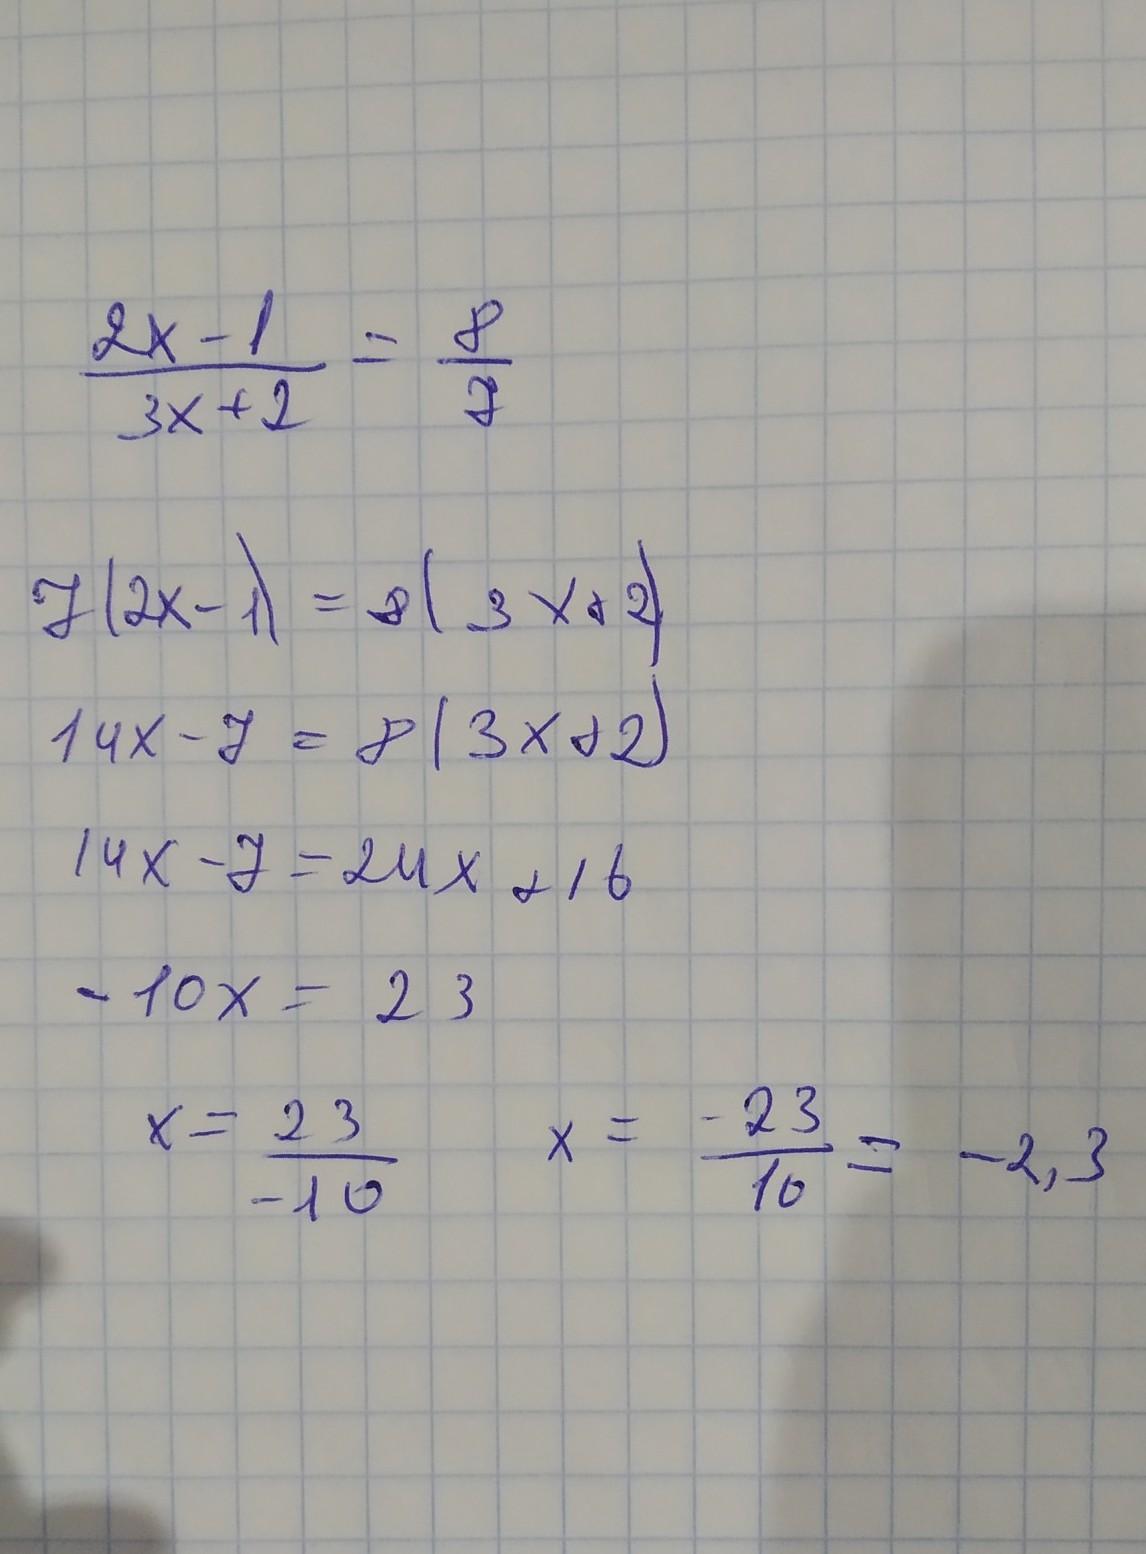 2x-1/3x+2 = 8/7
7(2x-1) = 8(3x+2)
14x-7 = 8(3x+2)
14x-7=24x+16
-10x= 23
x= 23/-10 x= -23/10 = -2,3